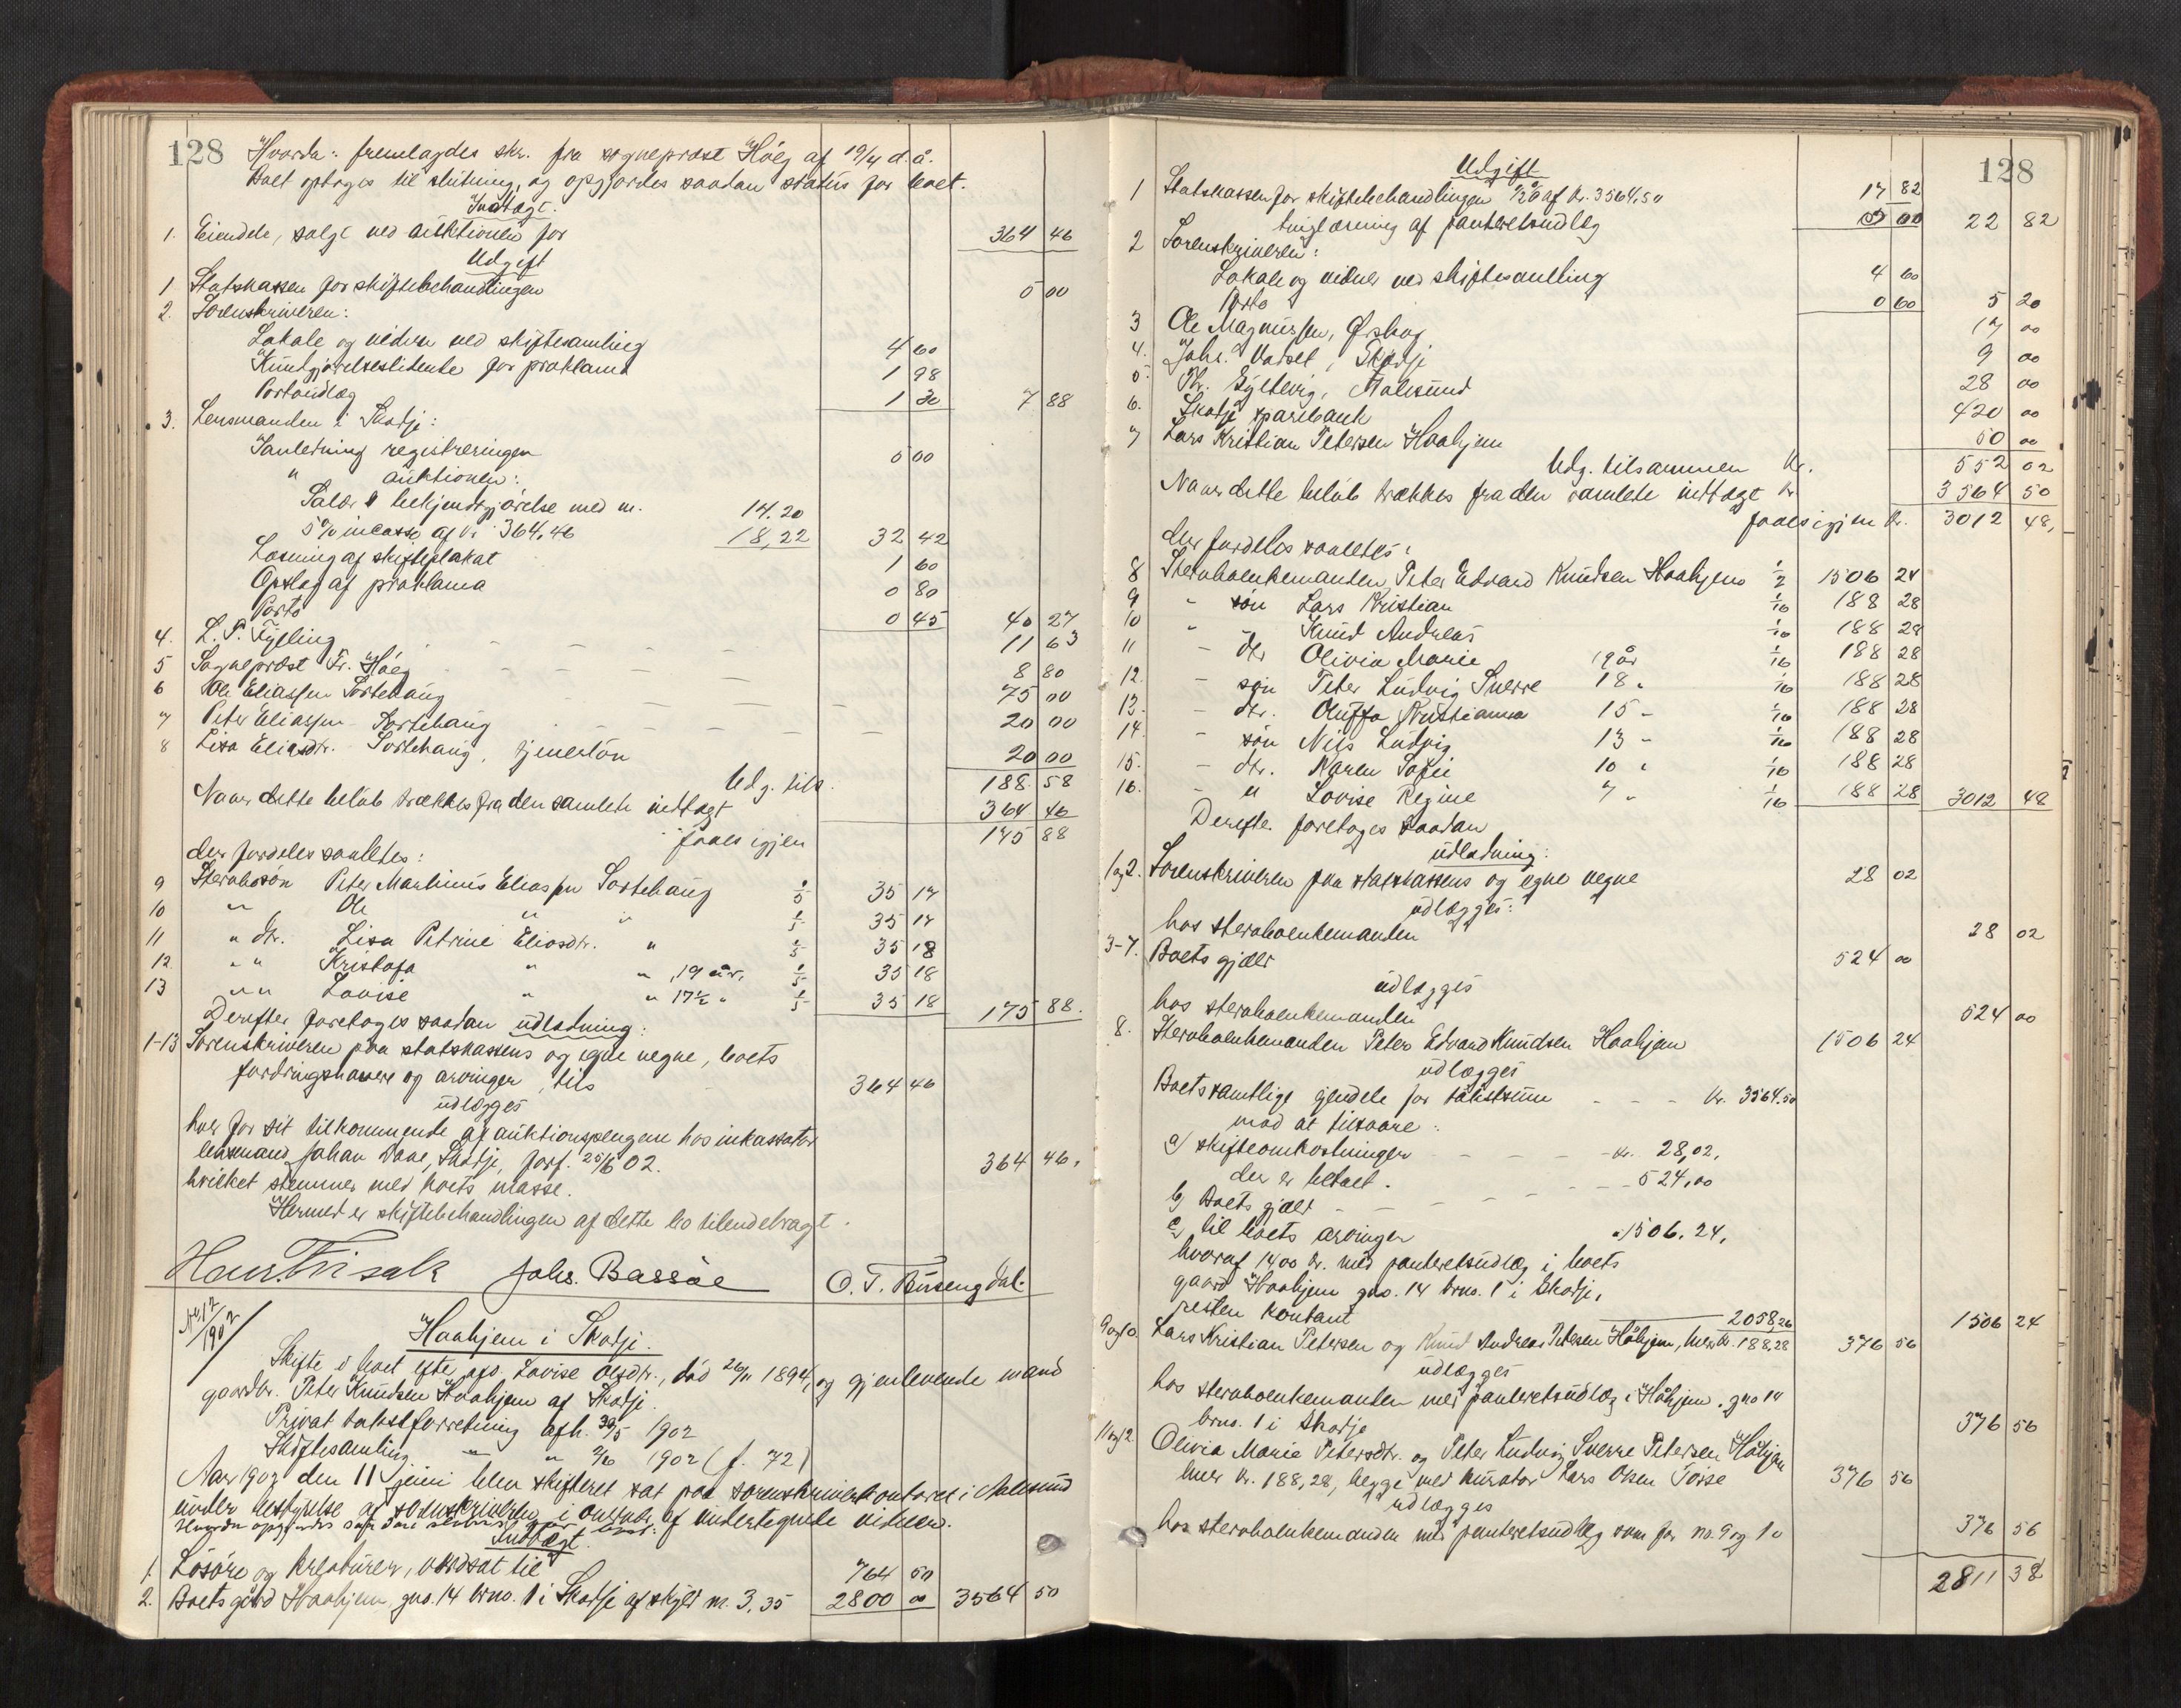 128
Hvorda: fremlagdes skr. fra sogneprest Høeg af 19/4 d.å.
Boet optoges til slutning, og opgjordes saadan status for boet.
Indtægt.
1. Eiendele, solgt ved auktionen for 364 46
Udgift
1 Statskassen for skiftebehandlingen 5 00
2. Sorenskriveren:
Lokale og vidner ved skiftesamling 4 60
Kundgjørelsestidende for proklama 1 98
Portoudlæg 1 30 7 88
3. Lensmanden i Skodje:
I anledning registreringen 5 00
" auktionen:
Salær & bekjendtgjørelse med m. 14.20
5 % incasso af kr 364,46 18,22 32 42
Læsning af skifteplakat 1 60
Opslag af proklama 0 80
Porto 0 45 40 27
4. L. P. Fylling 11 63
5 Sogneprest Fr. Høeg 8 80
6 Ole Eliassen Sortehaug 75 00
7 Peter Eliassen Sortehaug 20 00
8 Lisa Eliasdtr. Sortehaug, tjenerløn 20 00
Udg. tils. 188 58
Naar dette beløb trækkes fra den samlete indtægt 364 46
faaes igjen 175 88
der fordeles saaledes:
9 Stervbosøn Peter Martinus Eliassen Sortehaug 1/5 35 17
10 " " Ole " " 1/5 35 17
11 " dtr. Lisa Petrine Eliasdtr. " 1/5 35 18
12 " " Kristofa " " 19 år, 1/5 35 18
13 " " Lovise " " 17½ " 1/5 35 18 175 88.
Derefter foretoges saadan udlodning:
1-13 Sorenskriveren paa statskassens og egne vegne, boets
fordringshavere og arvinger, tils 364 46
udlægges
hver for sit tilkommende af auktionspengene hos inkassator
lensmand Johan Vaae, Skodje, forf. 25/6 02. 364 46.
hvilket stemmer med boets masse.
Hermed er skiftebehandlingen af dette bo tilendebragt.
Hans Frisak Johs. Bassøe O. T. Busengdal
No. 12/1902
Haahjem i Skodje.
Skifte i boet efter afd. Lovise Olsdtr., død 26/11 1894, og gjenlevende mand
gaardbr. Peter Knudsen Haahjem af Skodje.
Privat takstforretning afh. 30/5 1902
Skiftesamling " " 2/6 1902 (f. 72)
Aar 1902 den 11 juni blev skifteret sat paa sorenskriverkontoret i Aalesund
under bestyrelse af sorenskriveren i overvær af undertegnede vidner.
Hvorda opgjordes saadan status over boet:
Indtægt.
1. Løsøre og kreaturer, værdsat til 764 50
2. Boets gård Haahjem, gno. 14 brno. 1 i Skodje af skyld m. 3,35 2800 00 3564 50
128
Udgift
1 Statskassen for skiftebehandlingen ½ % af kr. 3564,50 17 82
tinglæsning af panteretsudlæg 5 00 22 82
2 Sorenskriveren:
Lokale og vidner ved skiftesamling 4 60
Porto 0 60 5 20
3 Ole Magnussen, Ørskog 17 00
4. Johs. Vadset, Skodje 9 00
5. Th. Gyltevig, Aalesund 28 00
6. Skodje sparebank 420 00
7 Lars Kristian Petersen Haahjem 50 00
Udg. tilsammen kr. 552 02
Naar dette beløb trækkes fra den samlete indtægt kr 3564 50
faaes igjen kr. 3012 48,
der fordeles saaledes:
8 Stervboenkemanden Peter Edvard Knudsen Haahjem 1/2 1506 24
9 " søn Lars Kristian 1/16 188 28
10 " - Knud Andreas 1/16 188 28
11 - dtr Olivia Marie 19 år 1/16 188 28
12. - søn Peter Ludvig Sverre 18 " 1/16 188 28
13. - dtr. Oluffa Kristianna 15 - 1/16 188 28
14. - søn Nils Ludvig 13 - 1/16 188 28
15. - dtr. Karen Sofie 10 " 1/16 188 28
16. - " Lovise Regine 7 " 1/16 188 28 3012 48
Derefter foretoges saadan
udlodning:
1 og 2. Sorenskriveren paa statskassens og egne vegne 28 02
udlægges:
hos stervboenkemanden 28 02
3-7. Boets gjæld 524 00
udlægges
hos stervboenkemanden 524 00
8. Stervboenkemanden Peter Edvard Knudsen Haahjem 1506 24
udlægges
Boets samtlige eiendele for takstsum - - - kr. 3564.50
mod at tilsvare:
a) skifteomkostninger - - - - kr. 28,02,
der er betalt.
b) Boets gjæld - - - - - - 524,00
c) til boets arvinger " 1506.24,
hvoraf 1400 kr. med panteretsudlæg i boets
gaard Haahjem gno. 14 brno. 1 i Skodje,
resten kontant 2058,26 1506 24
9 og 10. Lars Kristian Petersen og Knud Andreas Petersen Håhjem, hver kr. 188,28 376 56
udlægges
hos stervboenkemanden med panteretsudlæg i Håhjem, gno 14
brno. 1 i Skodje 376 56
11 og 12 Olivia Marie Petersdtr. og Peter Ludvig Sverre Petersen Håhjem
hver kr. 188,28, begge med kurator Lars Olsen 376 56
udlægges
hos stervboenkemanden med panteretsudlæg som for no. 9 og 10 376 56
2811 38